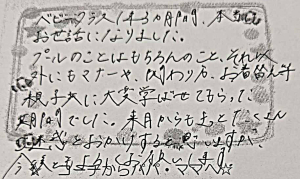 ベビークラス1年3ヵ月間、本当に
お世話になりました。
プールのことはもちろんのこと、それ以
外にもマナーや、関わり方、お着替え等
親子共に大変学ばせてもらった
期間でした。来月からもまたたくさん
ご迷惑をおかけすると思いますが、
今後ともよろしくお願いします